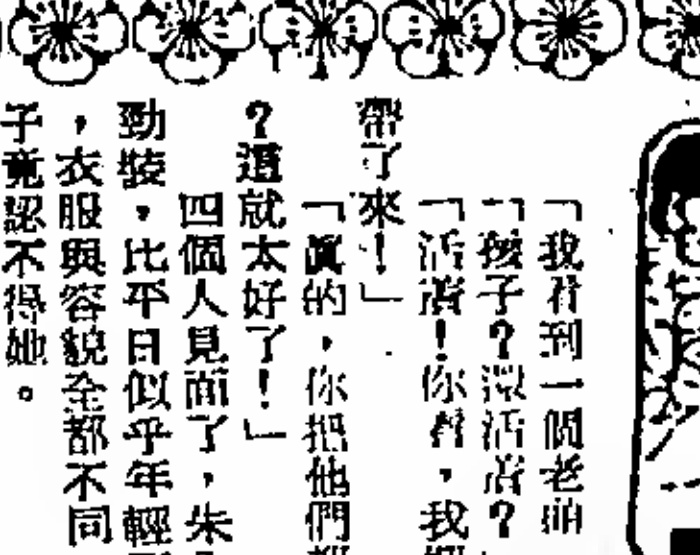 「我看到一個老
「孩子？還活着？
「活着！你看，我
帶了來！」
「眞的，你把他們都
？這就太好了！」
四個人見面了，朱
勁裝，比平日似乎年輕
，衣服與容貌全都不同
子竟認不得她。